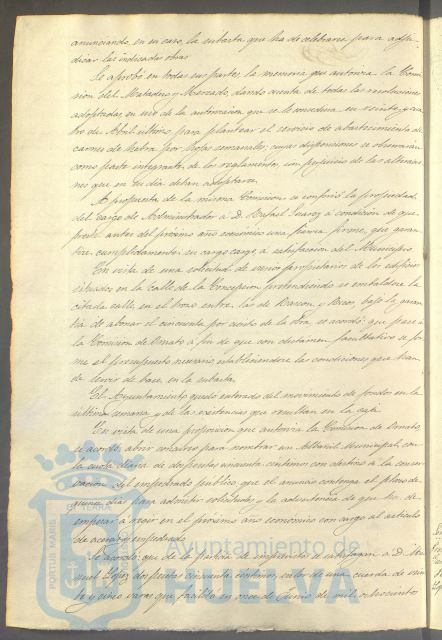 anunciando, en su caso, la subasta que ha de celebrarse para adju-
dicar las indicadas obras
Se aprobó en todas sus partes la memoria que autoriza la Comi-
sion del Matadero y Mercado, dando cuenta de todas las resoluciones
adoptadas, en uso de la autorizacion que se le concediera en veinte y cua-
tro de Abril último para plantear el servicio de abastecimiento de
carnes de hebra por bolsas semanales; cuyas disposiciones se observarán
como parte integrante de los reglamentos, sin perjuicio de las alteracio-
nes que en su dia deban adoptarse.
A propuesta de la misma Comision se confirió la propiedad
del cargo de Administrador a D. Rafael Suarez á condicion de que
preste antes del próximo año económico una fianza firme, que garan-
tice cumplidamente su cargo, á satisfaccion del Municipio.
En vista de una solicitud de varios propietarios de los edificios
situados en la calle de la Concepcion pretendiendo se embaldose la
citada calle, en el trozo entre las de Rascon y bajo la garan-
tia de abonar el cincuenta por ciento de la obra, se acordó: que pase á
la Comision de Ornato á fin de que con dictamen facultativo se for-
me el presupuesto necesario estableciendose las condiciones que han
de servir de base en la subasta.
El Ayuntamiento quedó enterado del movimiento de fondos en la
última semana y de las existencias que resultan en la caja.
En vista de una proposicion que autoriza la Comision de Ornato,
se acordó, abrir concurso para nombrar un Albañil Municipal, con
la cuota diaria de dos pesetas cincuenta céntimos con destino á la conser-
vacion del empedrado publico que el anuncio contenga el plazo de
quince dias para admitir solicitudes y la advertencia de que ha de
empezar á regir en el próximo año economico con cargo al artículo
de aceras y empedrado.
Se acordó: que de la partida de imprevistos se satisfagan a D. Ma-
nuel Lopez dos pesetos cincuenta centimos, valor de una cuerda de vein-
te y cinco varas que facilitó en once de Junio de mil ochocientos
PORTUS MARIS
TERRA
Ayuntamiento de
HUELVA